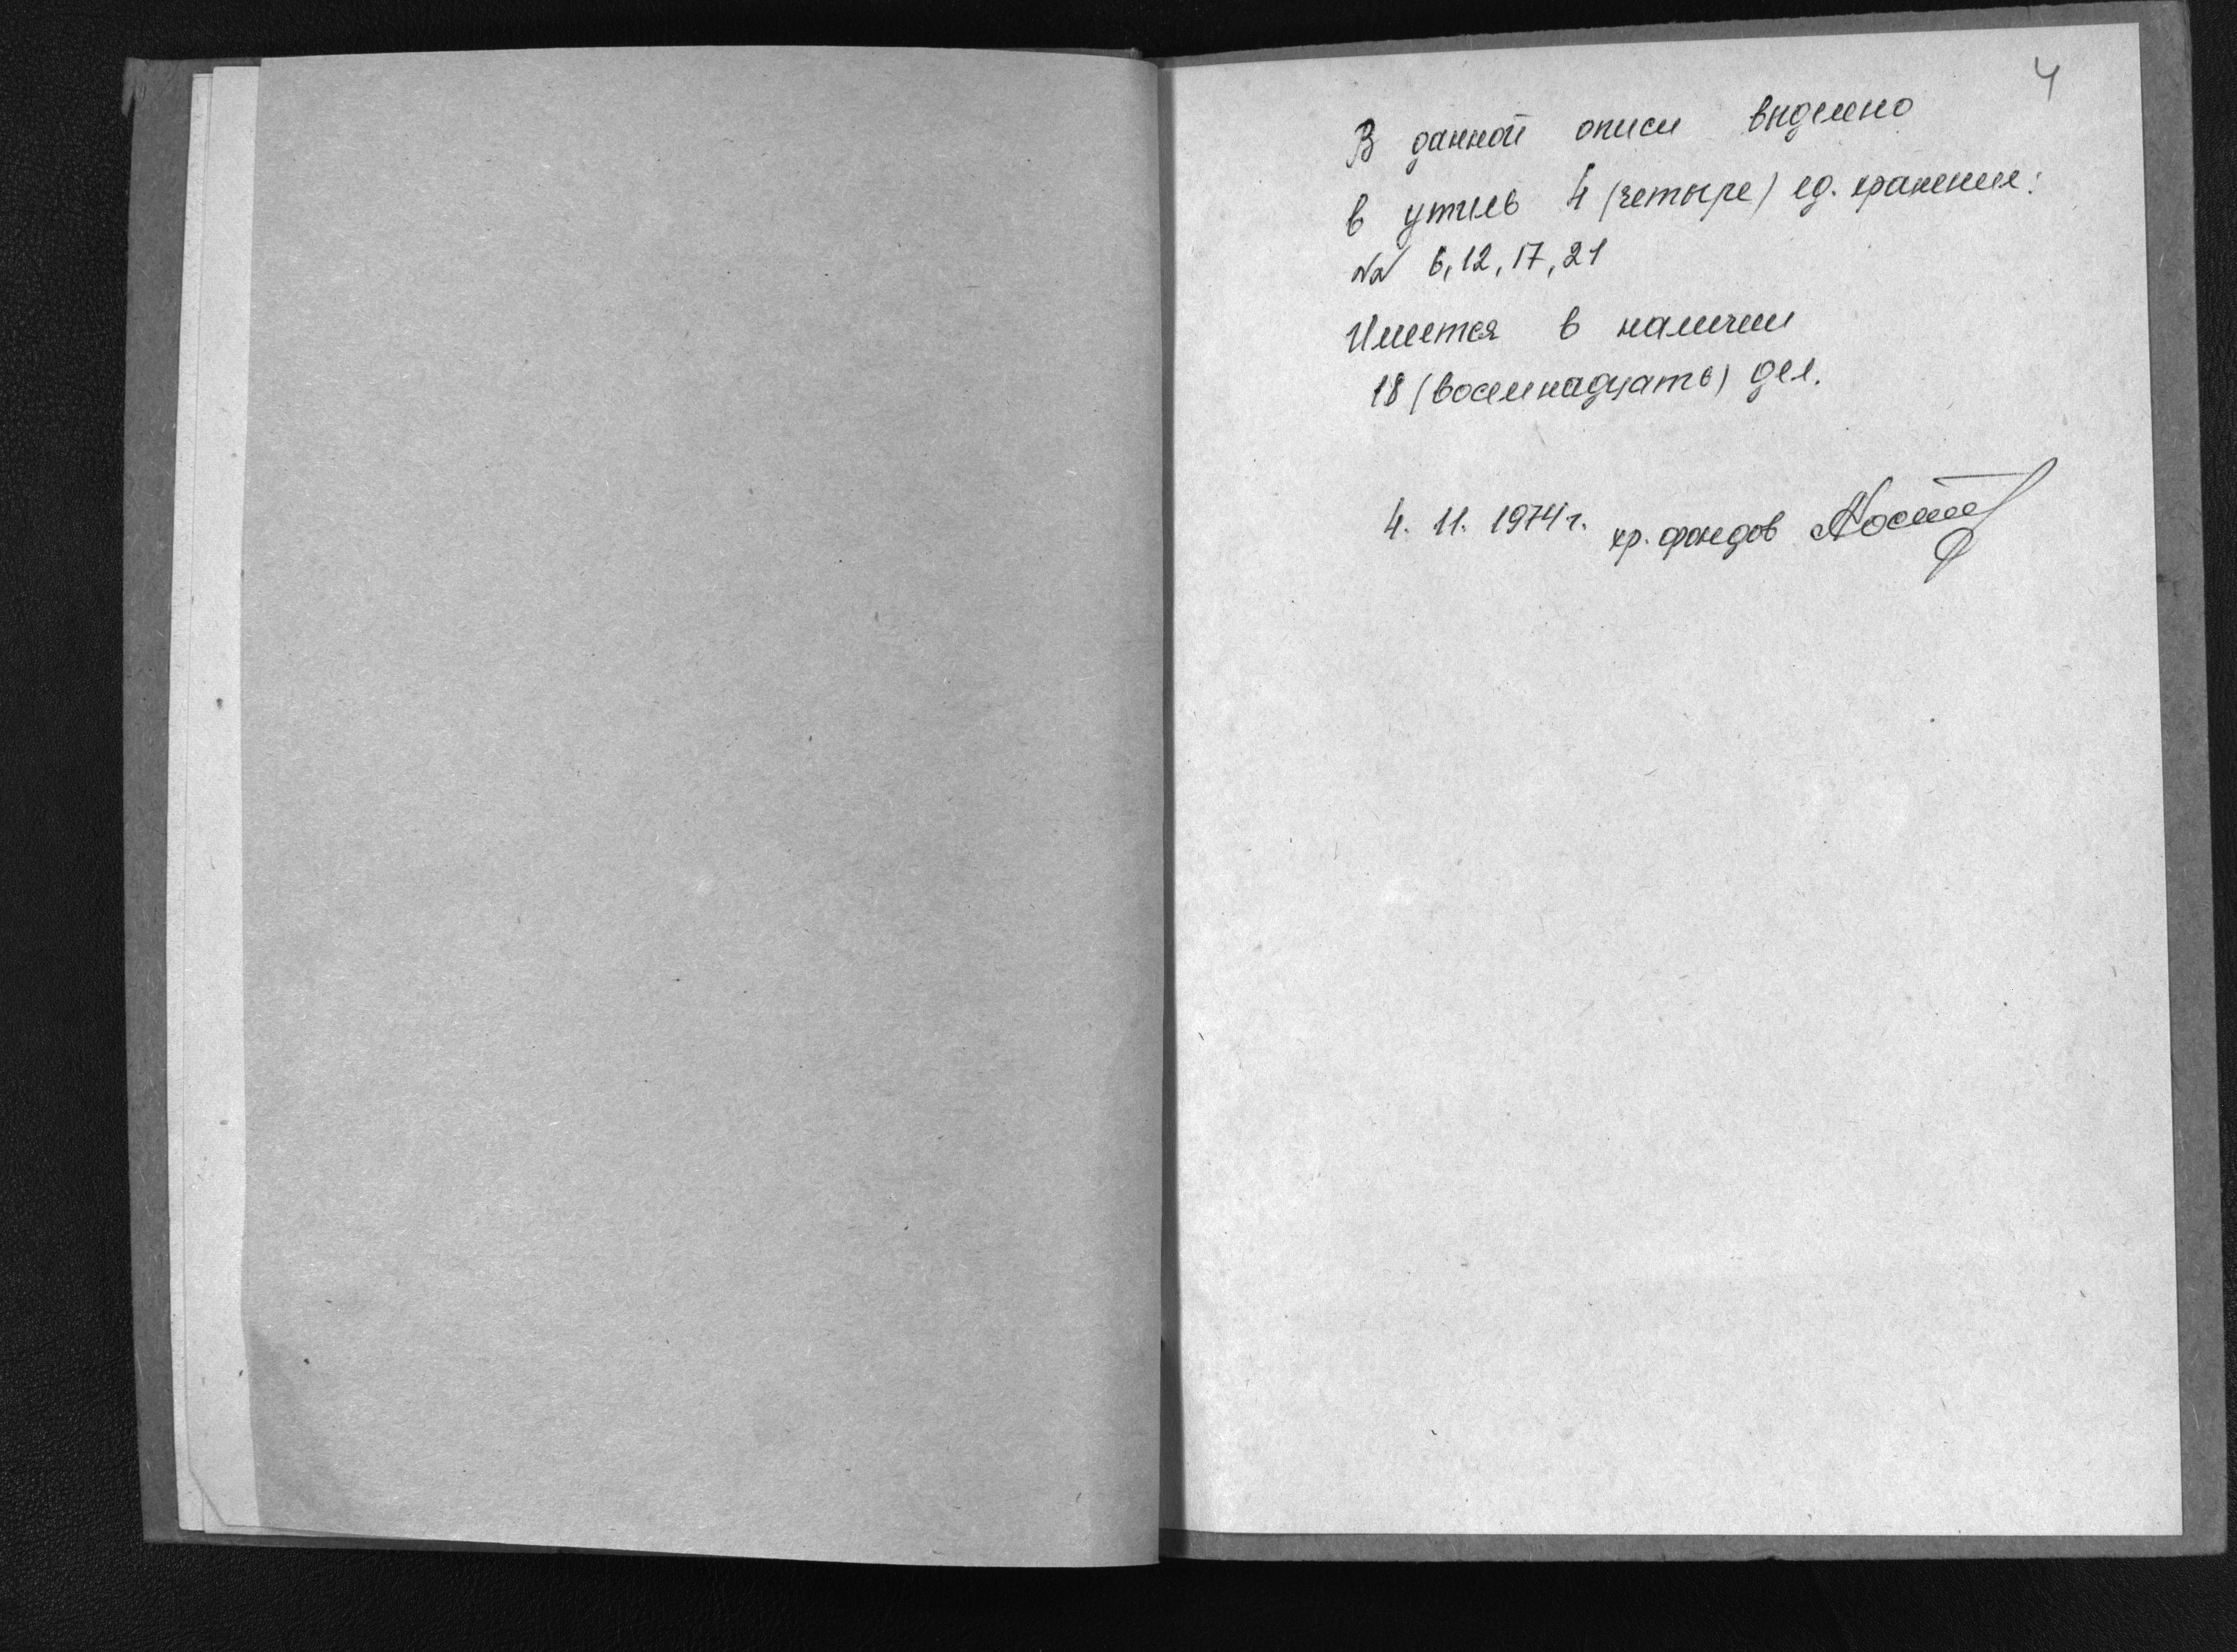 4
В данной описи выделено
в утиль 4 (четыре) ед. хранения:
№№ 6, 12, 17, 21
Имеется в наличии
18 (восемнадцать) дел.
4. 11. 1974 г. хр. фондов